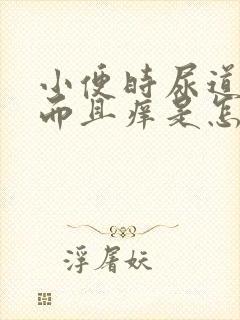 小便时尿道
而且痒是怎
浮屠妖